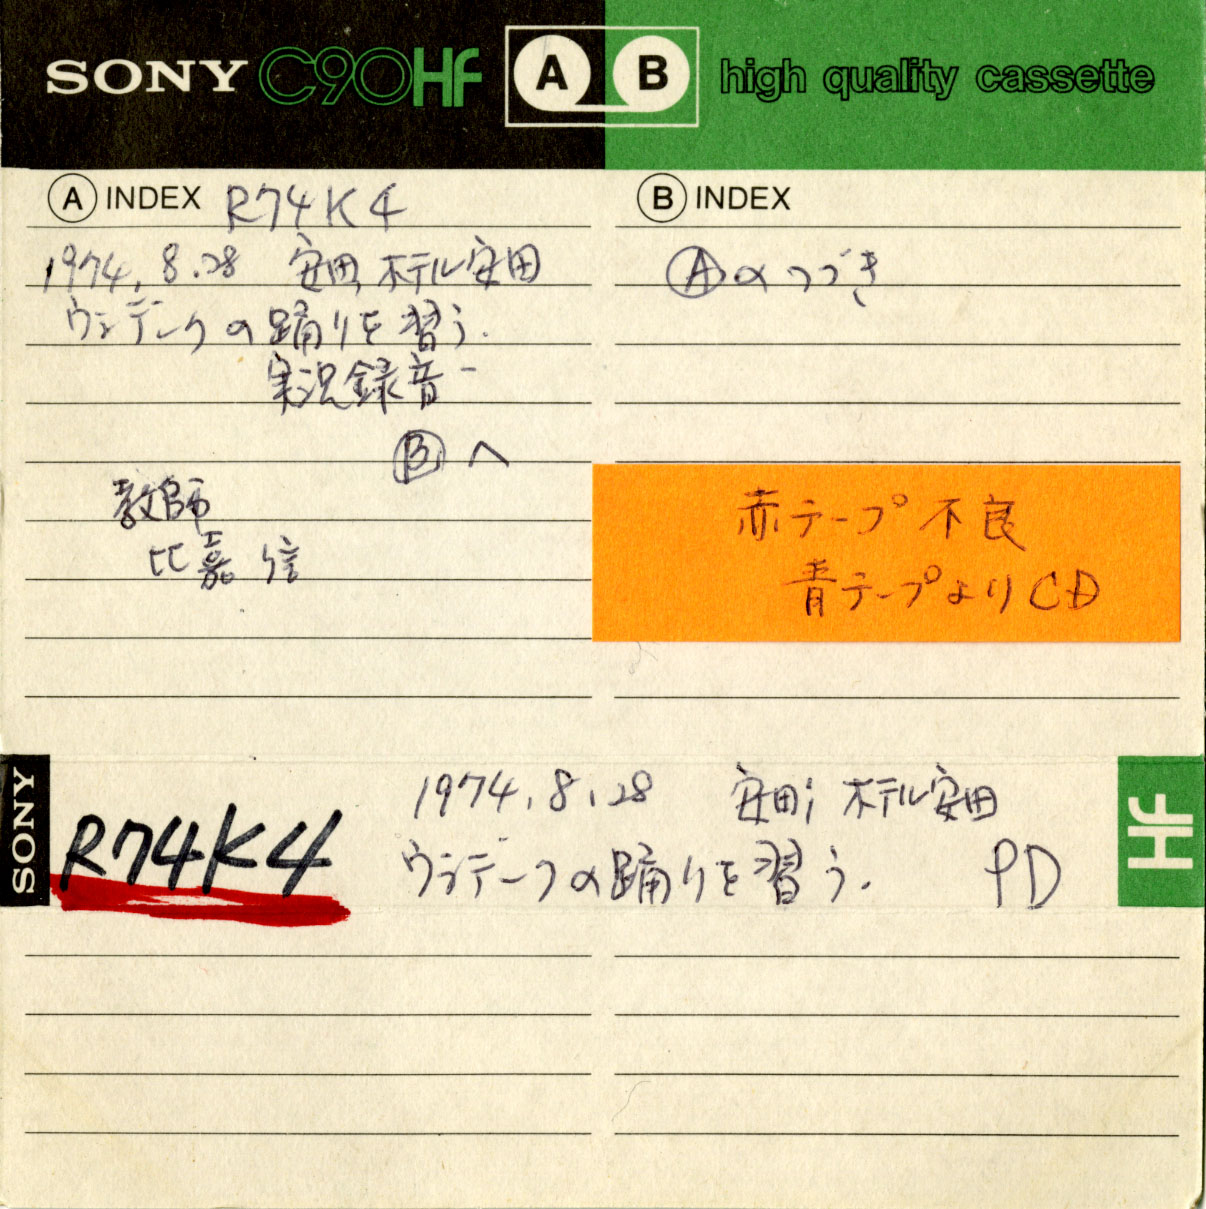 SONY C90HF A B high quality cassette
A INDEX R74K4
1974.8.28 安田,ホテル安田
ウシデークの踊りを習う.
実況録音
Ⓑへ
教師
比嘉 信
B INDEX
Ⓐのつづき
赤テープ不良
青テープよりCD
SONY
R74K4
1974.8.28 安田;ホテル安田
ウシデークの踊りを習う. PD
HF